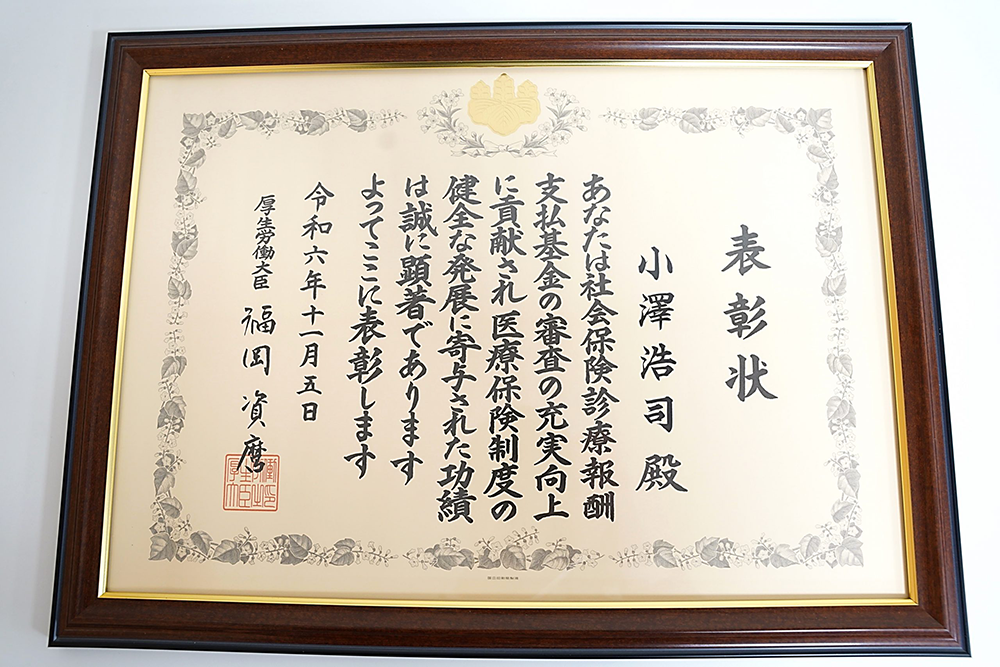 表彰状
小澤浩司殿
あなたは社会保険診療報酬
支払基金の審査の充実向上
に貢献され医療保険制度の
健全な発展に寄与された功績
は誠に顕著であります
よってここに表彰します
令和六年十一月五日
厚生労働大臣 福岡資麿